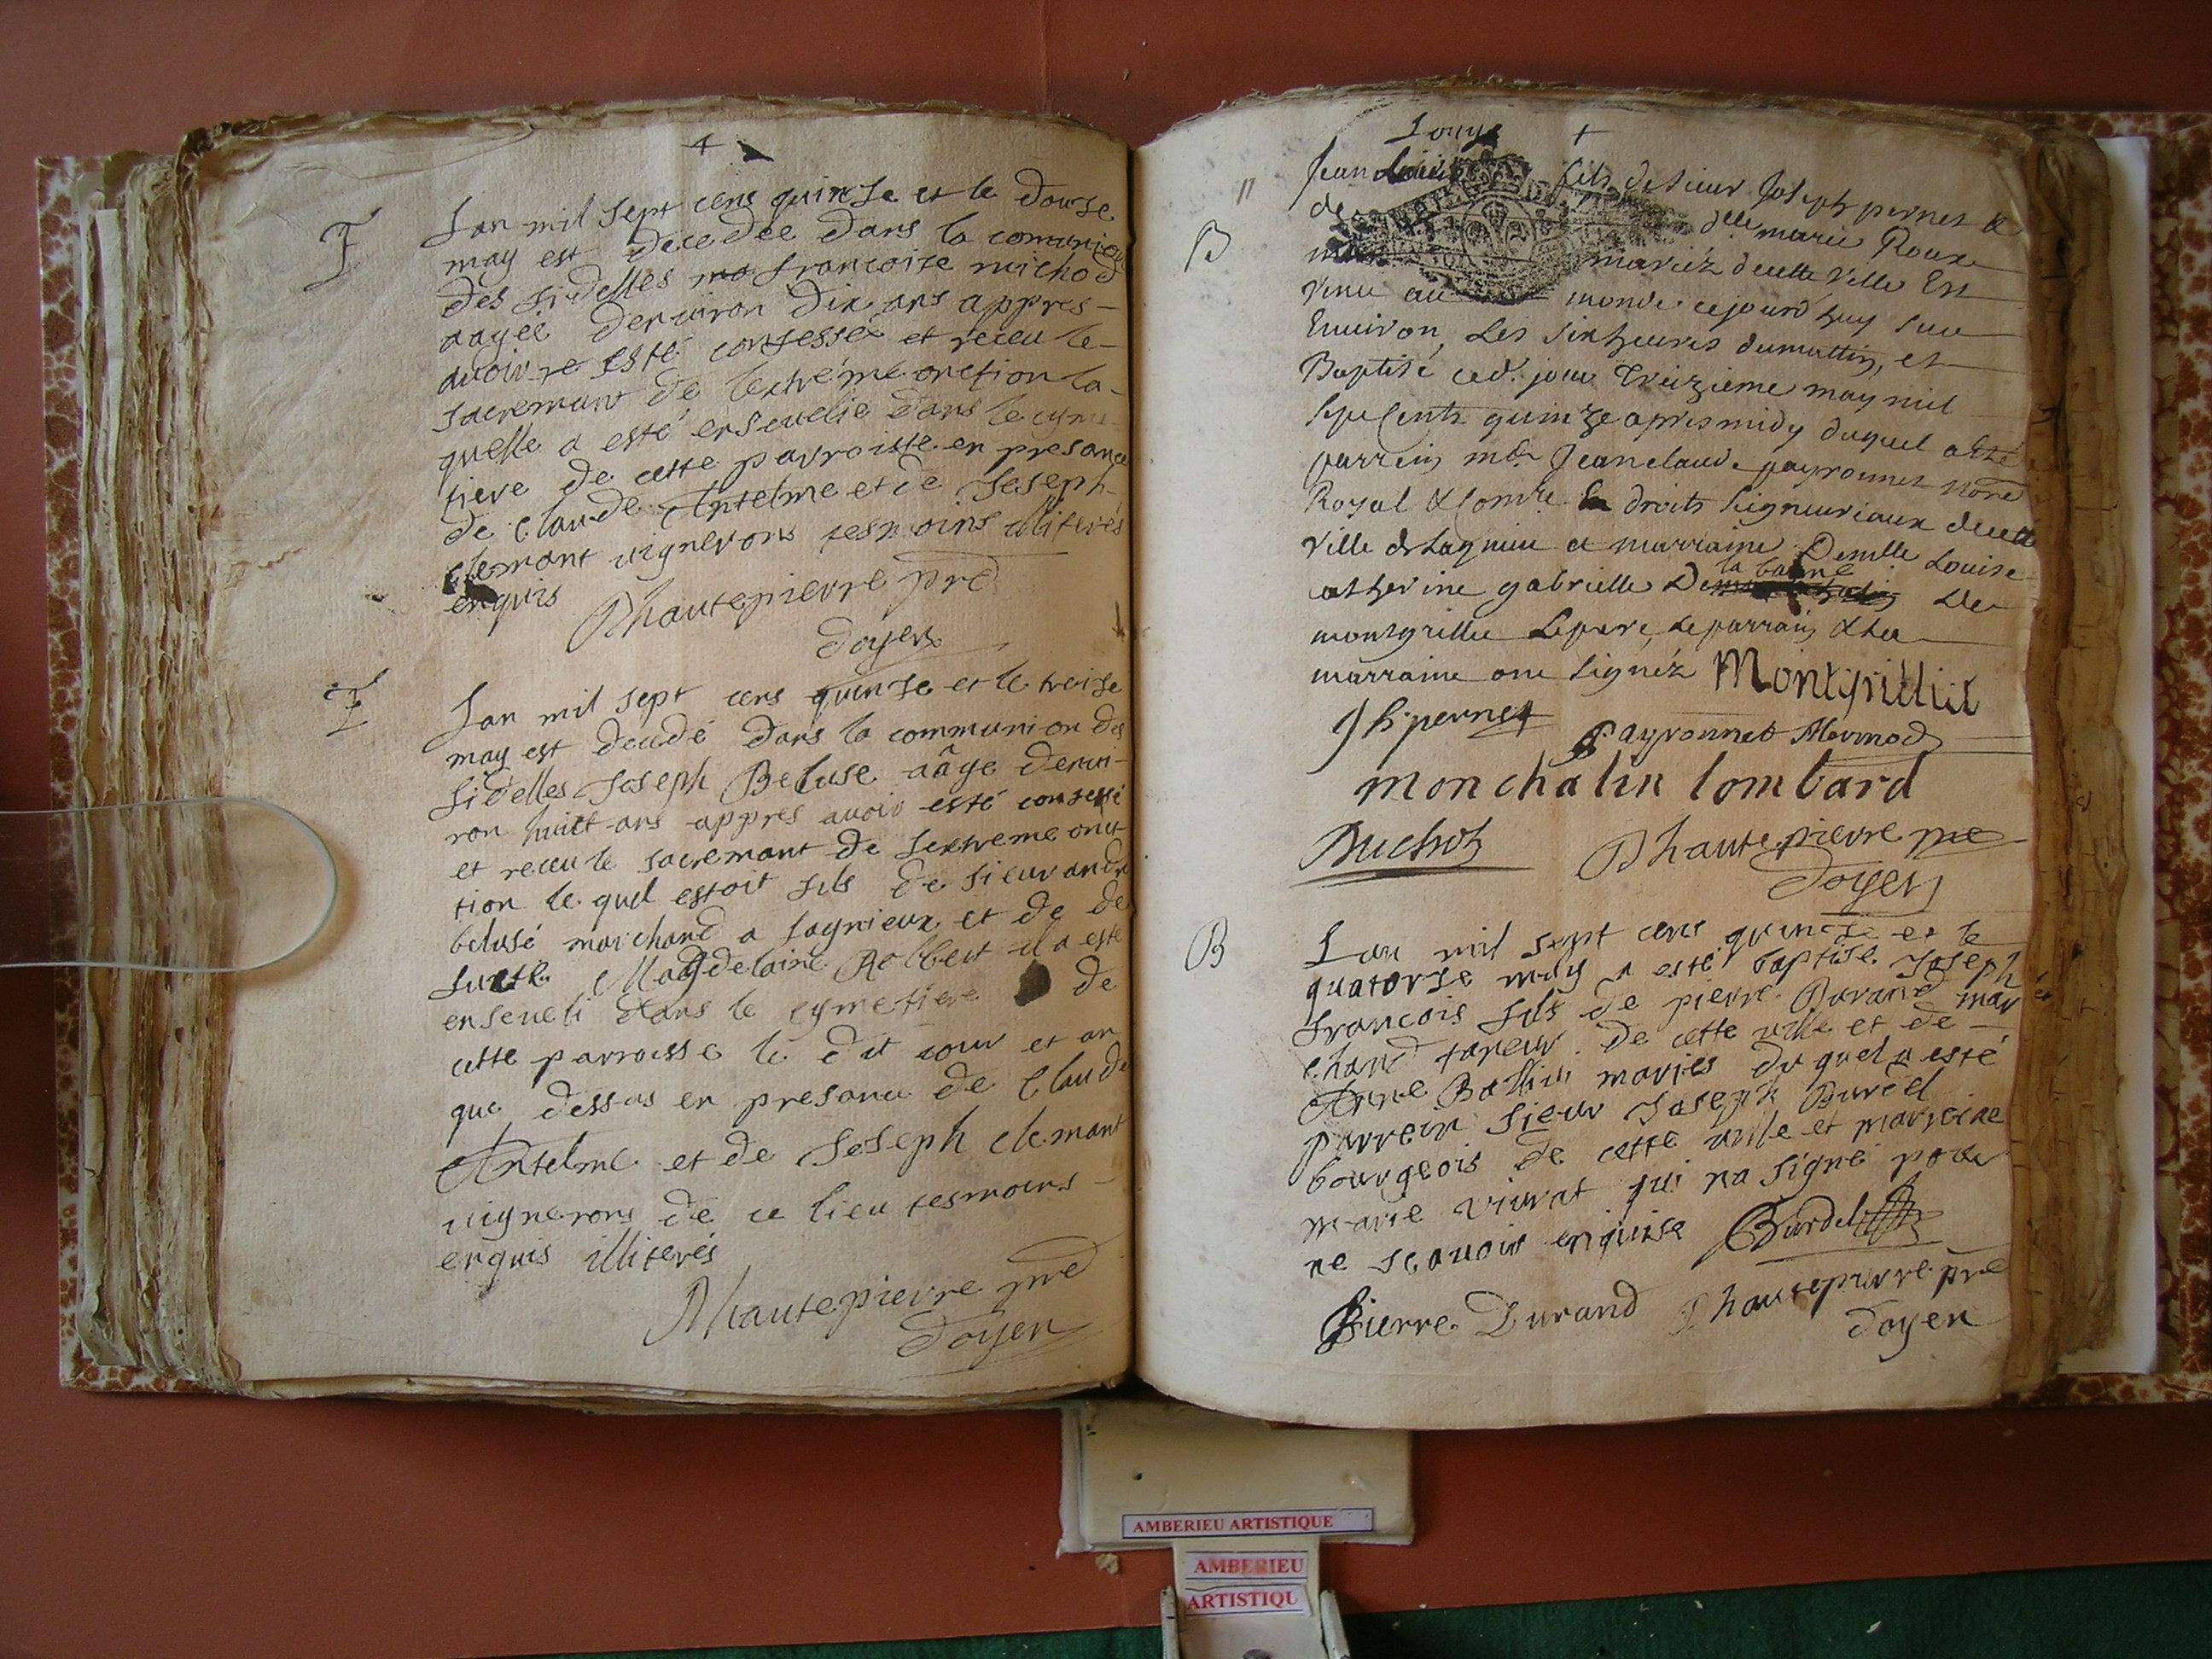 +
F
Lan mil sept cens quinse et le douse
may est decedée dans la comunion
des fidelles francoise michod
aagée denuiron dix ans appres
auoire esté confessée et receu le
sacremant de lextréme onction la
quelle a esté enseuelie dans le cyme
tiere de cette parroisse en presance
de Claude Antelme et de Joseph
Clemant uignerons tesmoins illiterés
enquis
Dhautepierre pre
doyen
F
Lan mil sept cens quinse et le treise
may est decedé dans la communion des
fidelles Joseph Beluse aâge denui-
ron huict ans appres auoir esté confessé
et receu le sacremant de lextreme onct
tion le quel estoit fils de sieur andre
belusé marchand a lagnieux et de de
Magdelaine Robbert il a esté
enseueli dans le cymetiere de
cette parroisse le dit iour et an
que dessus en presance de Claude
Antelme et de Joseph clemant
uignerons de ce lieu tesmoins
enquis illiterés
Dhautepierre pre
doyen
Louys +
Jean fils de sieur Joseph pernet &
B
de dlle marie Roux
mariéz decette ville Est
venu au monde cejourdhuy sur
Enuiron Les six heures dumattin, et
Baptisé ced. jour treizieme may mil
sept cents quinze apres midy duquel a esté
parrein mr Jeanclaude payronnet nore
Royal & droits seigneuriaux decette
ville de Lagnieu et marraine Demlle Louise
la baume
catherine gabrielle De De
montgrillie Lepere, le parrain & la
marraine ont signéz Montgrillie
Jh pernet Payronnet Mermod
monchalin lombard
Buchot Dhautepierre pre
doyen
B
Lan mil sept cens quinse et le
quatorse may a esté baptisé Joseph
francois fils de pierre Durand mar
chand taneur de cette uille et de
Anne mariés du quel a esté
parrein sieur Joseph Burdel
bourgeois de cette uille et marreine
marie viurat qui na signé pour
ne scauoir enquise Burdel
Pierre Durand Dhautepierre pre
doyen
AMBERIEU ARTISTIQUE
AMBERIEU
ARTISTIQU